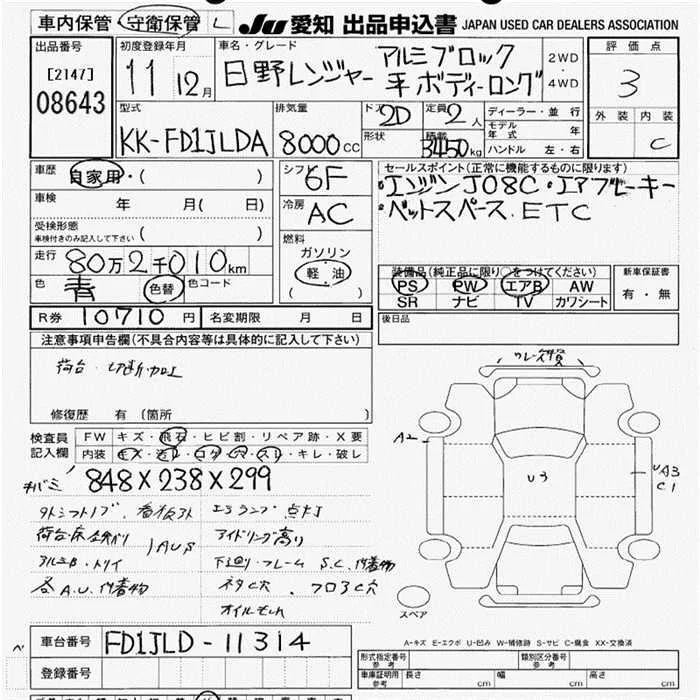 車内保管・守衛保管 L JU 愛知 出品申込書 JAPAN USED CAR DEALERS ASSOCIATION
出品番号 [2147] 08643
初度登録年月 11年 12月
車名・グレード 日野レンジャー アルミブロック 平ボディーロング
2WD・4WD
評価点 3
外装 内装 C
型式 KK-FD1JLDA
排気量 8000cc
ドア 2D
形状
定員 2人
積載 3450kg
ディーラー・並行
モデル年式 年
ハンドル 左・右
車歴 自家用・( )
車検 年 月( 日)
受検形態 車検付きのみ記入して下さい ( )
走行 80万2千010km
色 青 色替 色コード
シフト 6F
冷房 AC
燃料 ガソリン 軽油 ( )
セールスポイント(正常に機能するものに限ります)
・エンジンJ08C・エアブレーキ
・ベットスペース.ETC
装備品(純正品に限り○をつけてください)
PS PW エアB AW
SR ナビ TV カワシート
新車保証書 有・無
R券 10710円 名変期限 月 日
後日品
注意事項申告欄(不具合内容等は具体的に記入して下さい)
荷台・切断・加工
修復歴 有 (箇所 )
検査員記入欄
FW キズ・飛石・ヒビ割・リペア跡・X要
内装 キズ・汚レ・コゲ・穴・スレ・キレ・破レ
848×238×299
エコランプ点灯
アイドリング高り
下廻り・フレーム S.C.付着物
オイルもれ
A2
U3
UA3
C1
スペア
A-キズ E-エクボ U-凹み W-補修跡 S-サビ C-腐食 XX-交換済
車台番号 FD1JLD-11314
登録番号
形式指定番号 参考 類別区分番号 参考
車庫証明用 参考 長さ cm 幅 cm 高さ cm